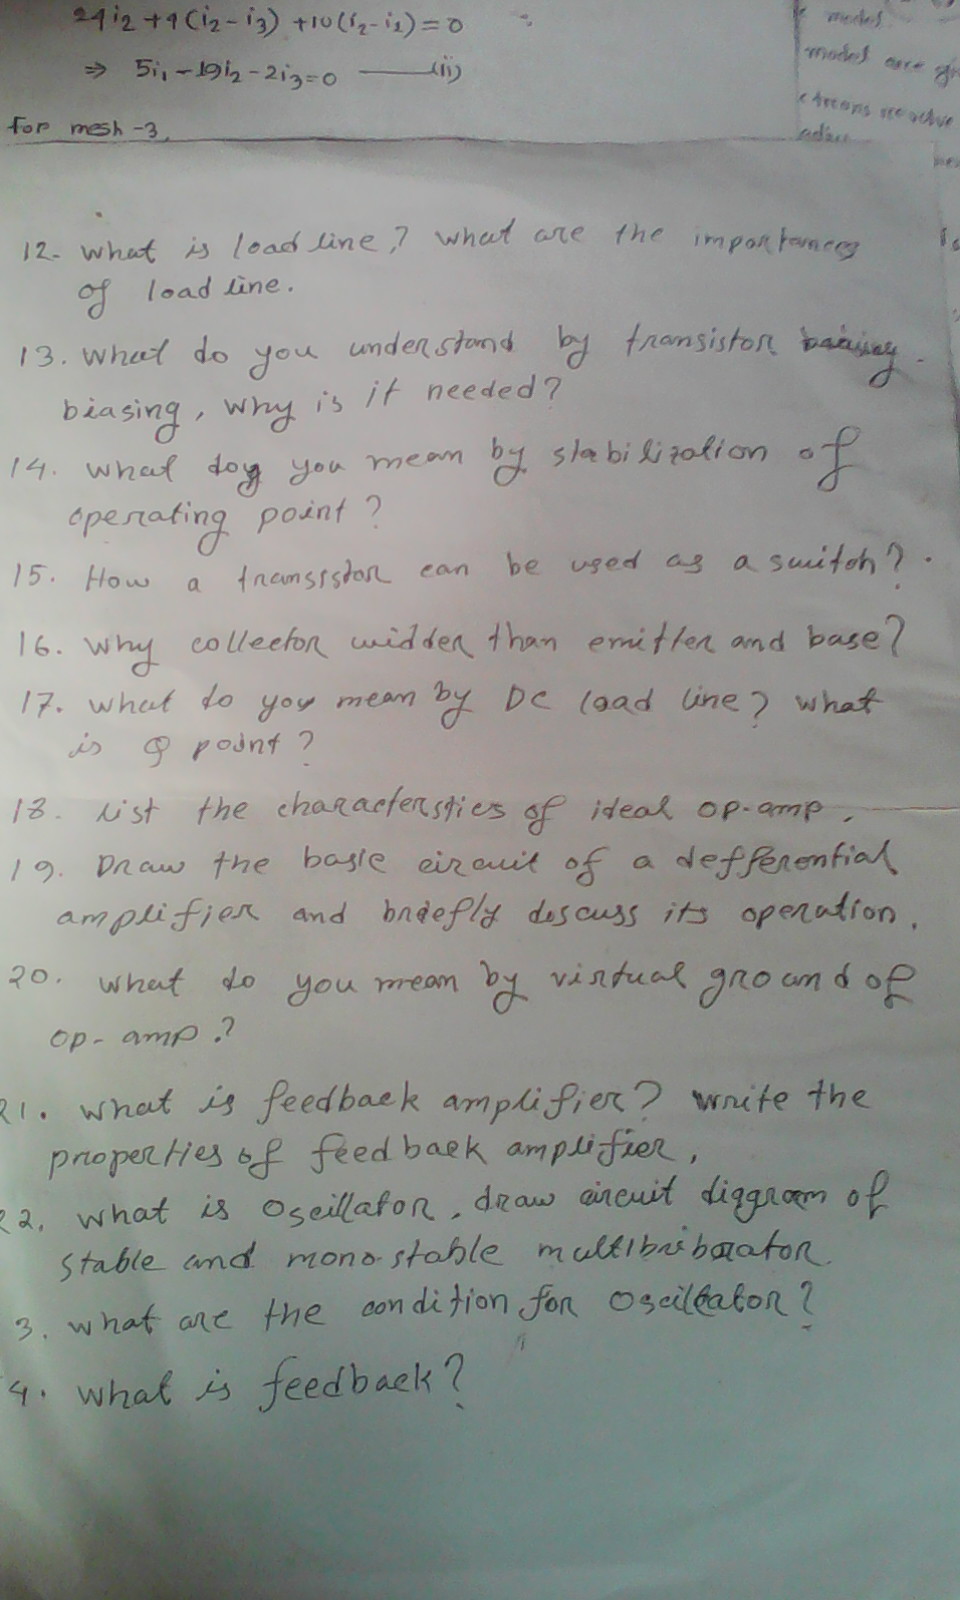 24i2 +4(i2-i3) +10(i2-i1)=0
⇒ 5i1-19i2-2i3=0 —(ii)
for mesh-3,
model
model are
12. What is load line? What are the importances
of load line.
13. What do you understand by transistor
biasing, why is it needed?
14. What doy you mean by stabilization of
operating point?
15. How a transistor can be used as a switch?
16. Why collector widder than emitter and base?
17. What do you mean by DC load line? What
is Q point?
18. List the characterstics of ideal op-amp.
19. Draw the basic circuit of a defferential
amplifier and briefly discuss its operation.
20. What do you mean by virtual ground of
op-amp.?
21. What is feedback amplifier? Write the
properties of feedback amplifier.
22. What is Oscillator, draw circuit diagram of
stable and monostable
3. What are the condition for Oscillator?
4. What is feedback?